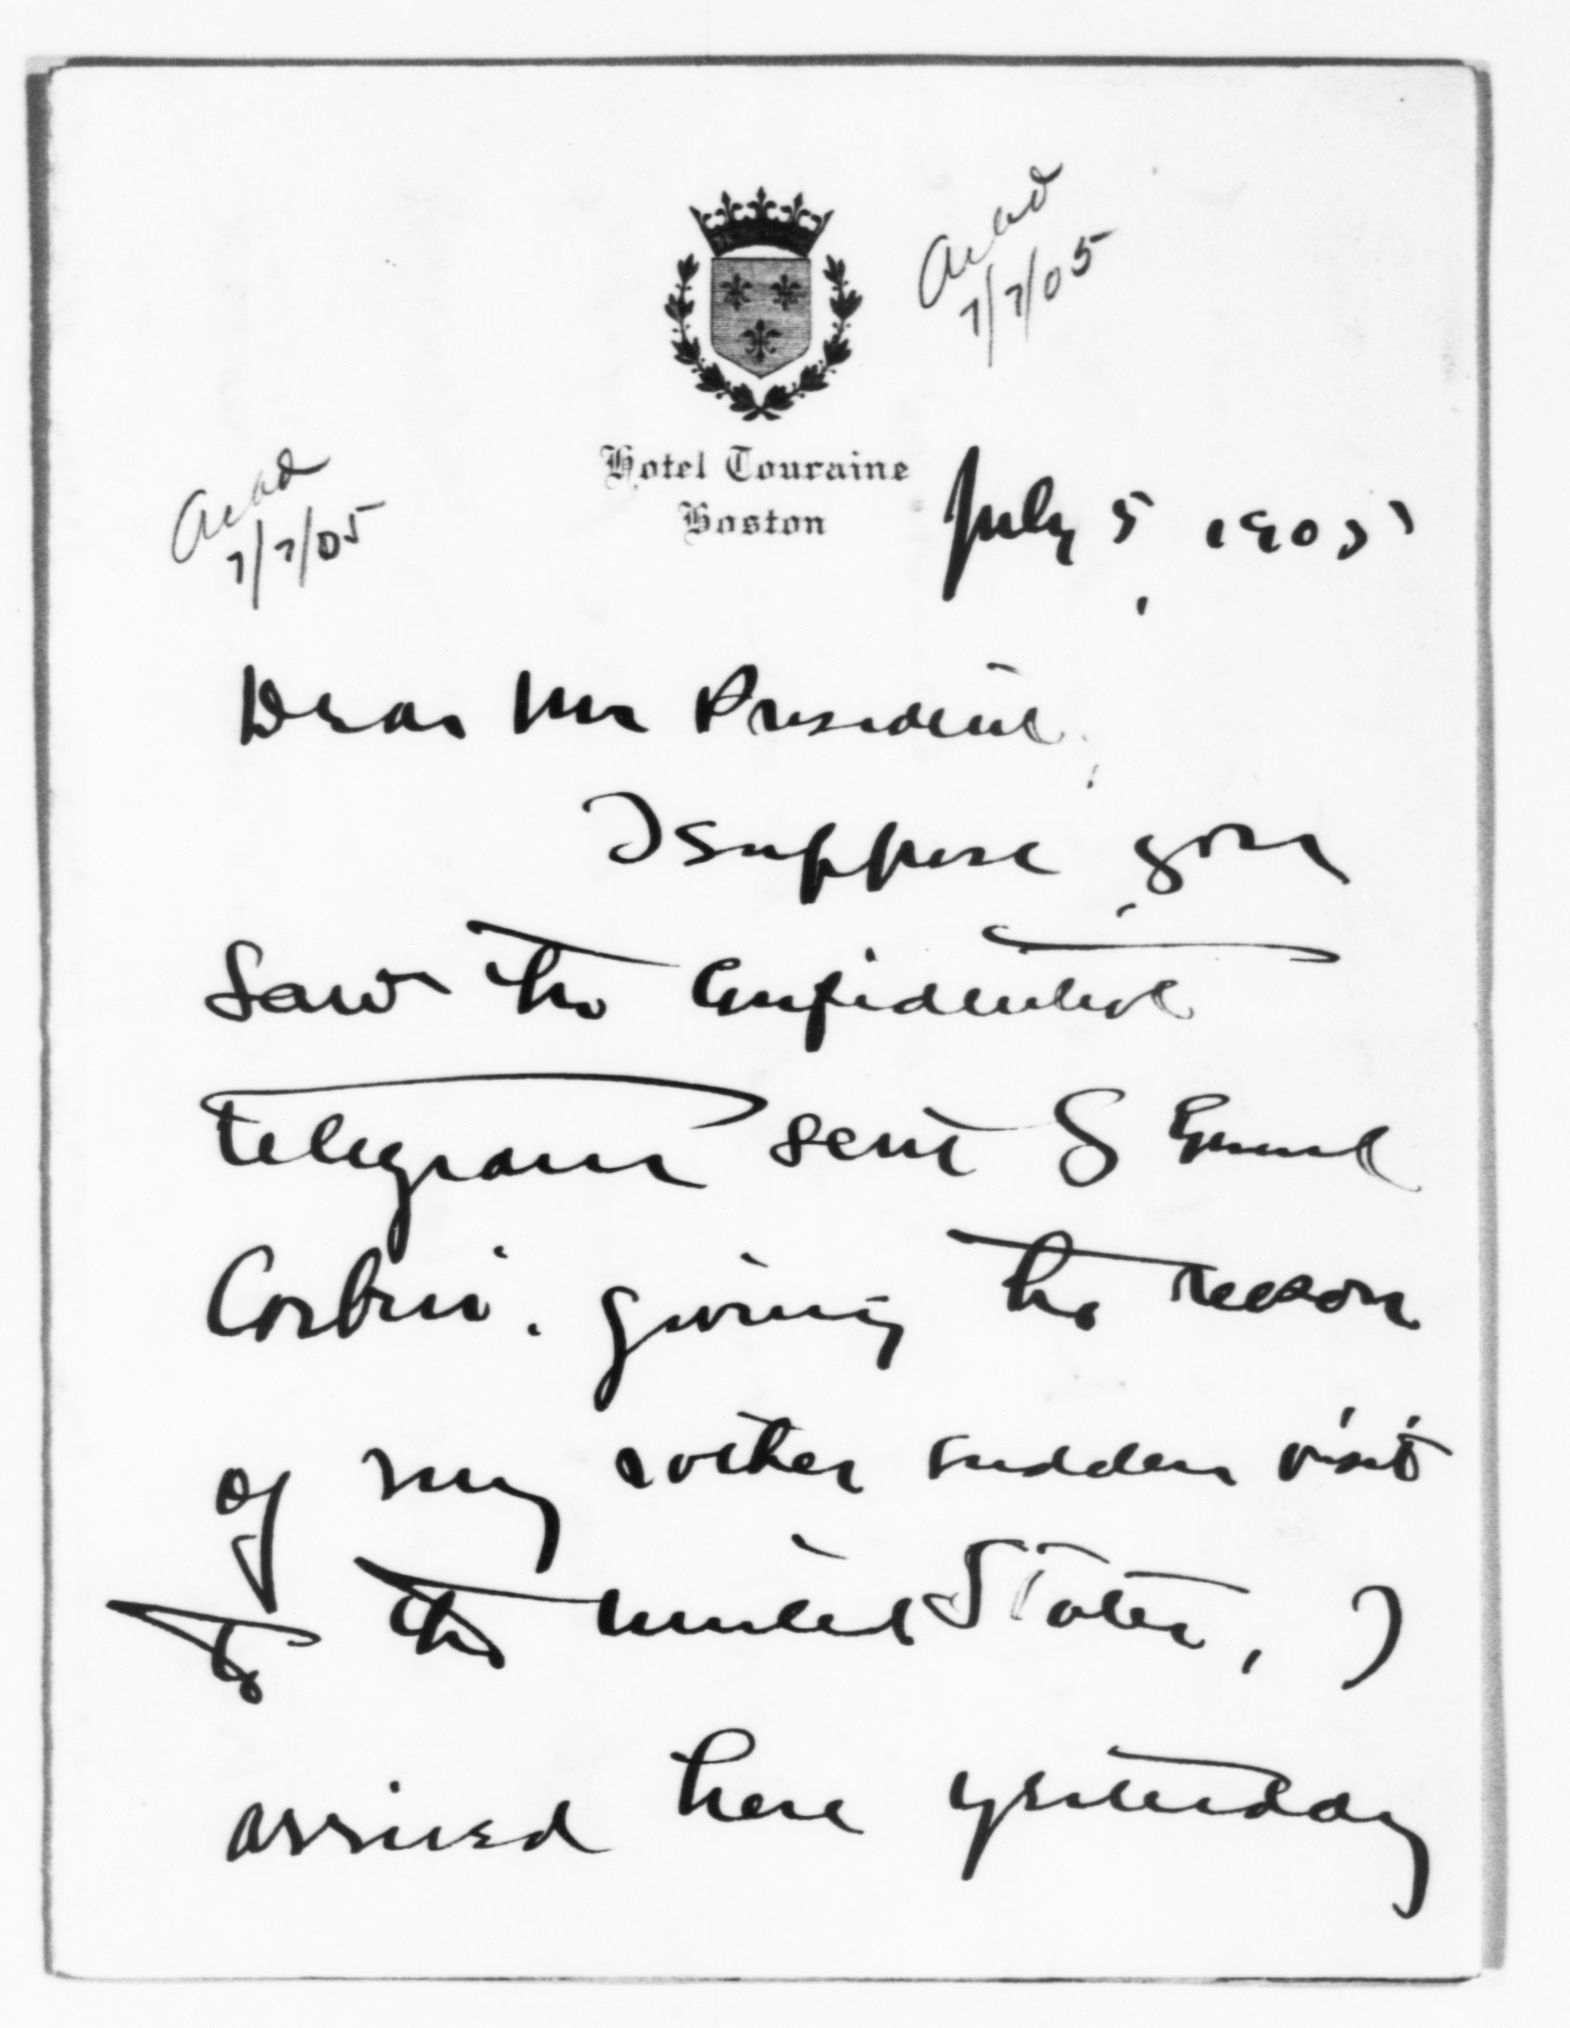 Ackd
7/7/05
Hotel Touraine
Boston
Ackd
7/7/05
July 5, 1905
Dear Mr President,
I suppose you
saw the confidential
telegram sent to General
Corbin, giving the reason
of my rather sudden visit
to the United States, I
arrived here yesterday